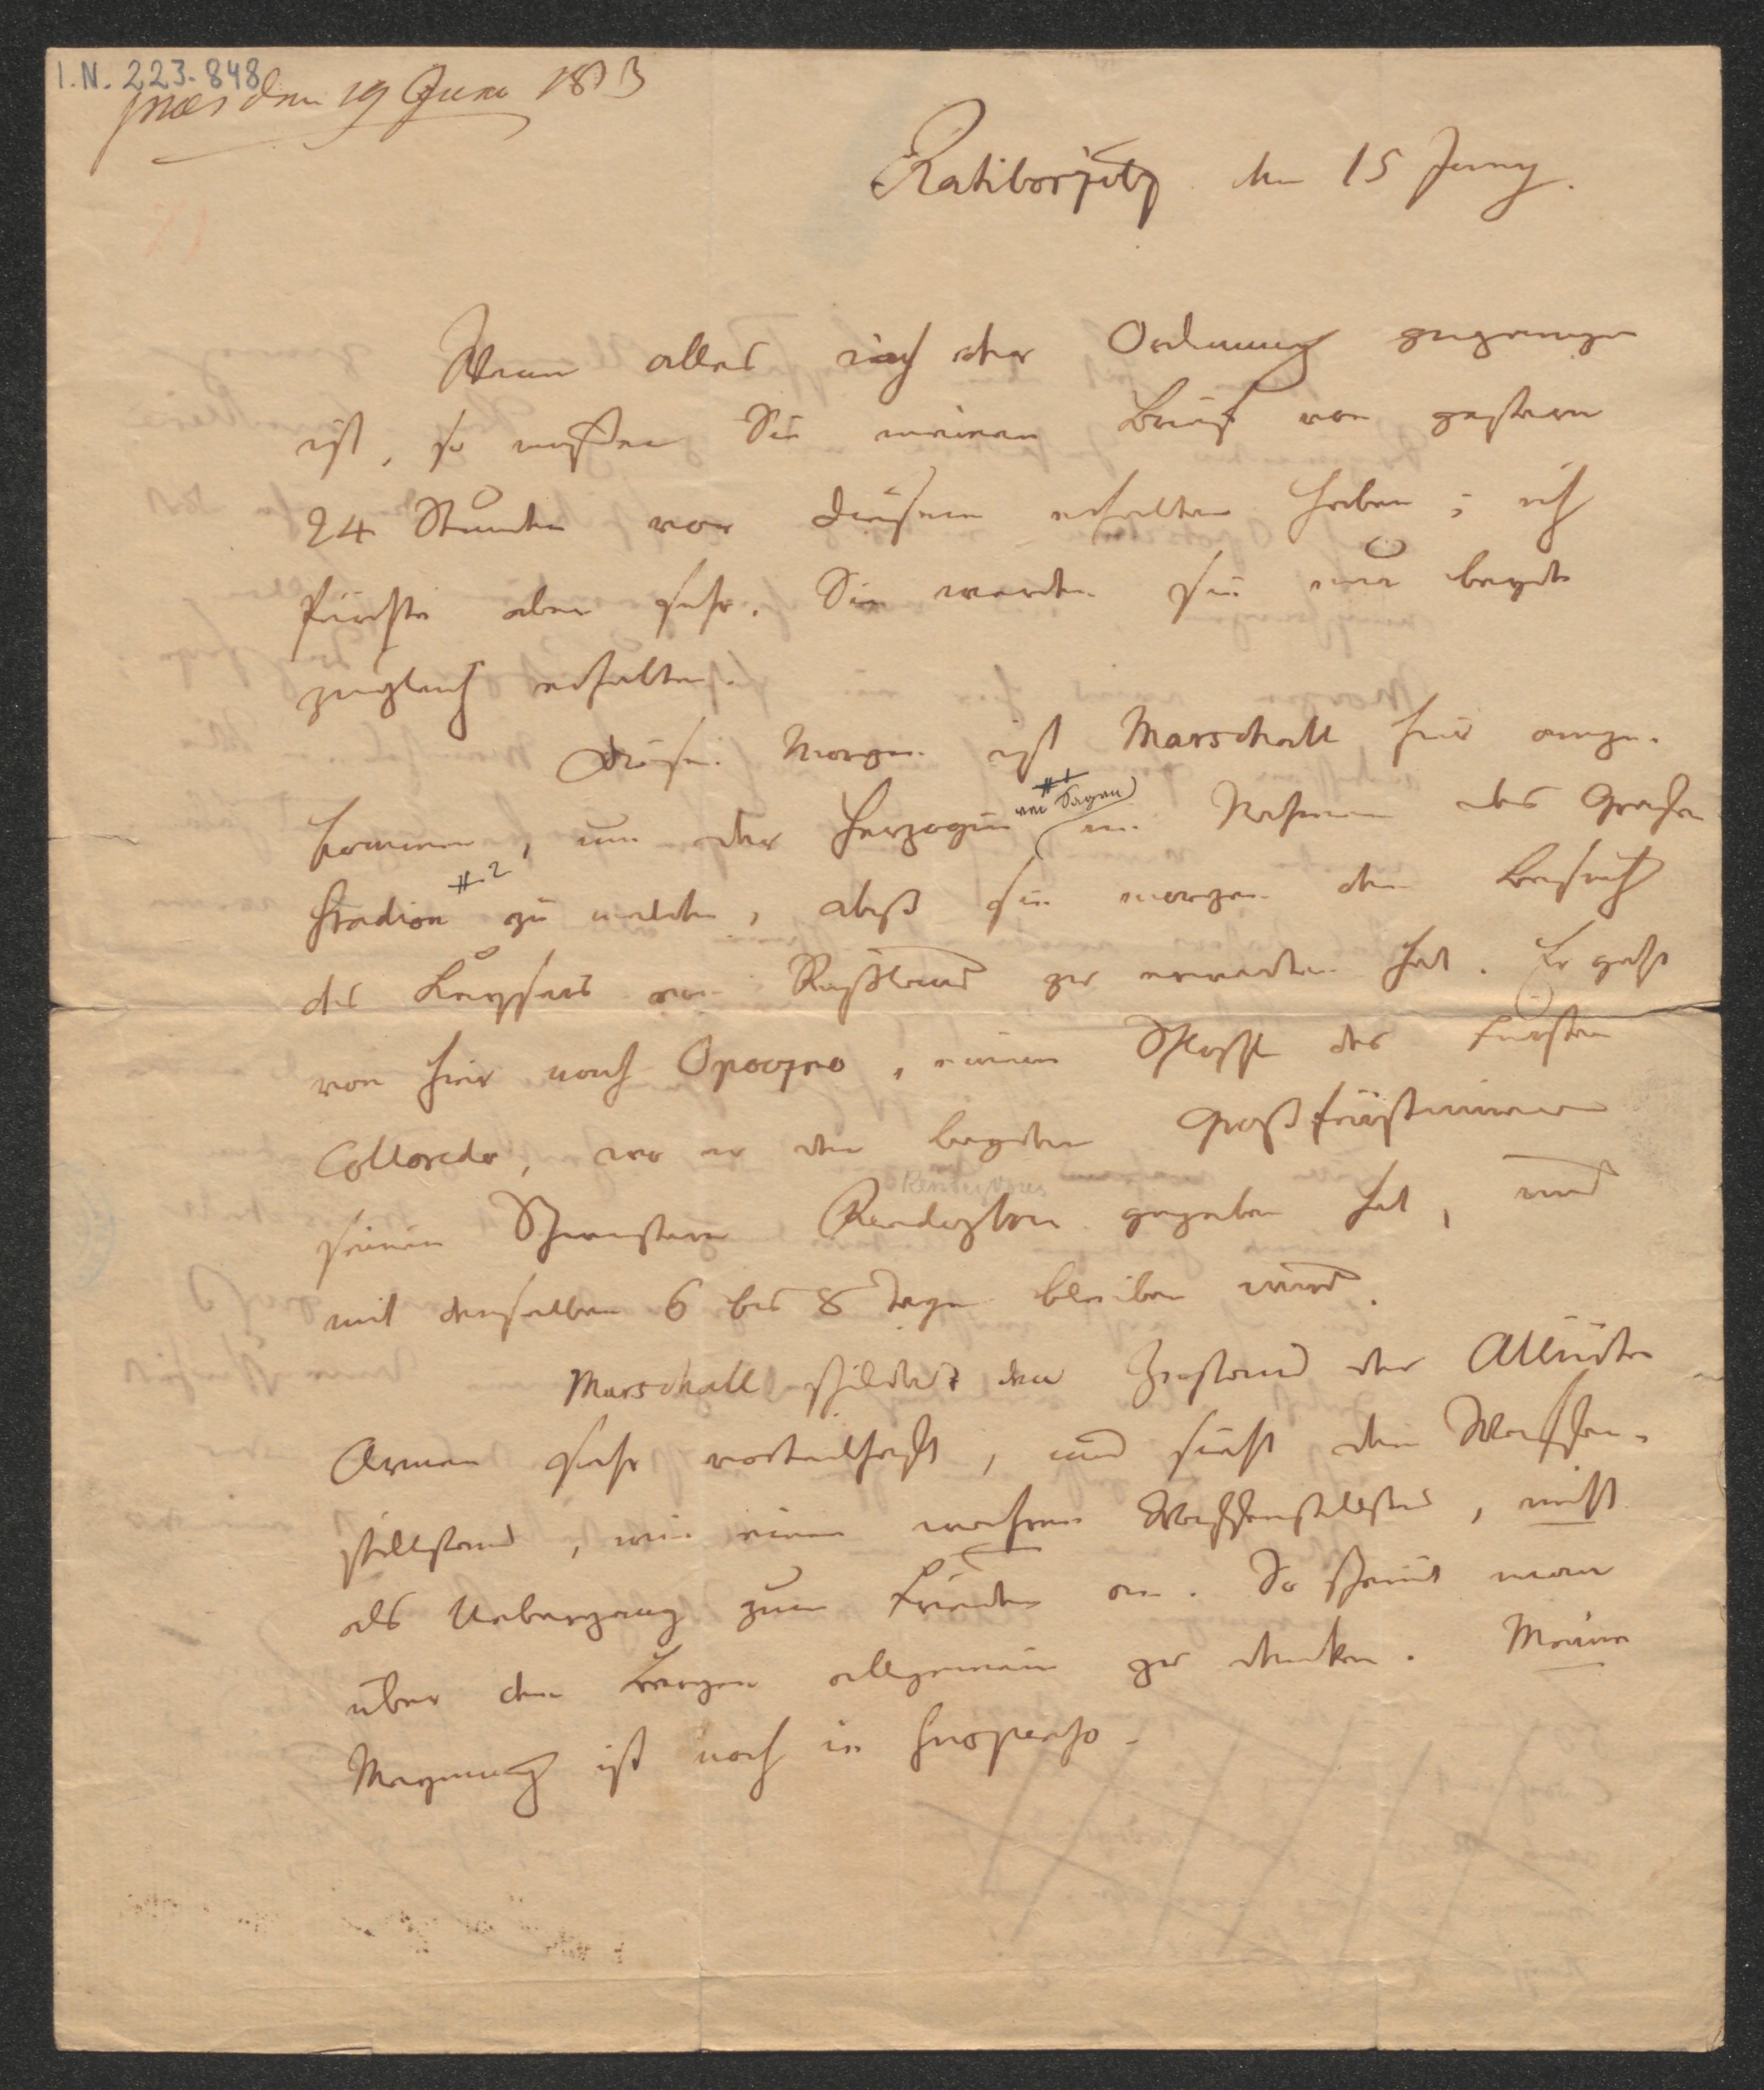 I.N. 223.848
præs den 19 Juni 1813
Ratiborzitz den 15 Juny.
Wenn alles nach der Ordnung gegangen
ist, so müssen Sie meinen Brief von gestern
24 Stunden vor diesem erhalten haben; ich
fürchte aber sehr, Sie werden sie nur beyde
zugleich erhalten.
Diesen Morgen ist Marschall hier ange-
kommen, um der Herzogin von Sagan im Nahmen des Grafen
Stadion #2 zu melden, daß sie morgen den Besuch
des Kaysers von Rußland zu erwarten hat. Er geht
von hier nach Opoczno, einem Schloße des Fürsten
Colloredo, wo er den beyden Großfürstinnen
Rendezvous
seinen Schwestern Rendezvous gegeben hat, und
mit denselben 6 bis 8 Tage bleiben wird.
Marschall schildert den Zustand der Alliirten
Armeen sehr vortheilhaft, und sieht den Waffen-
stillstand, wie einen wahren Waffenstillstand, nicht
als Uebergang zum Frieden an. So scheint man
über den Bergen allgemein zu denken. Meine
Meynung ist noch in Suspenso.